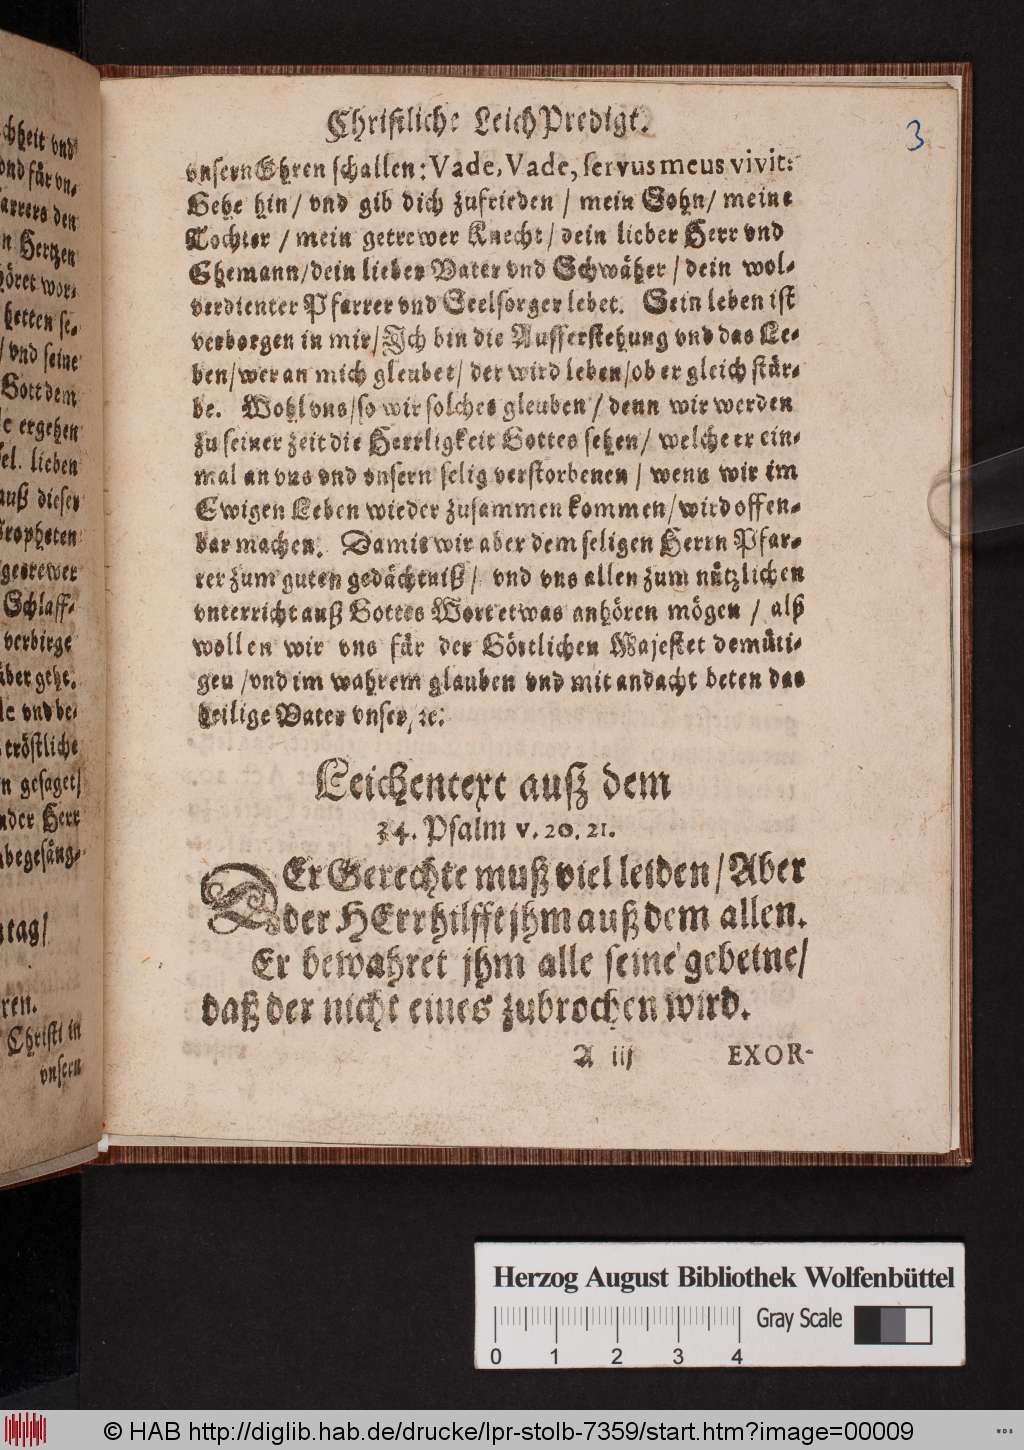 chheit vnd
vnd für vn-
farrers den
n Hertzen
höret wor-
hetten se-
/ vnd seine
Gott dem
le ergehen
sel. lieben
auß dieser
Propheten
getrewer
Schlaff-
verbirge
über gehe.
le vnd be-
tröstliche
n gesaget/
nder Herr
abegesäng-
ntag/
ren.
Christi in
vnsern
Christliche LeichPredigt.
3
vnsern Ohren schallen: Vade, Vade, servus meus vivit:
Gehe hin/ vnd gib dich zufrieden / mein Sohn/ meine
Tochter / mein getrewer Knecht/ dein lieber Herr vnd
Ehemann/dein lieber Vater vnd Schwäher / dein wol-
verdienter Pfarrer vnd Seelsorger lebet. Sein leben ist
verborgen in mir/ Ich bin die Aufferstehung vnd das Le-
ben/ wer an mich gleubet/ der wird leben/ob er gleich stür-
be. Wohl vns/ so wir solches gleuben / denn wir werden
zu seiner zeit die Herrligkeit Gottes sehen/ welche er ein-
mal an vns vnd vnsern selig verstorbenen / wenn wir im
Ewigen Leben wieder zusammen kommen/ wird offen-
bar machen. Damit wir aber dem seligen Herrn Pfar-
rer zum guten gedächtniß/ vnd vns allen zum nützlichen
vnterricht auß Gottes Wort etwas anhören mögen / alß
wollen wir vns für der Göttlichen Majestet demüti-
gen /vnd im wahrem glauben vnd mit andacht beten das
heilige Vater vnser, ꝛc.
Leichentext auß dem
34. Psalm v. 20. 21.
DEr Gerechte muß viel leiden / Aber
der HErr hilfft jhm auß dem allen.
Er bewahret jhm alle seine gebeine/
daß der nicht eines zubrochen wird.
A iij EXOR-
Herzog August Bibliothek Wolfenbüttel
Gray Scale
0 1 2 3 4
© HAB http://diglib.hab.de/drucke/lpr-stolb-7359/start.htm?image=00009